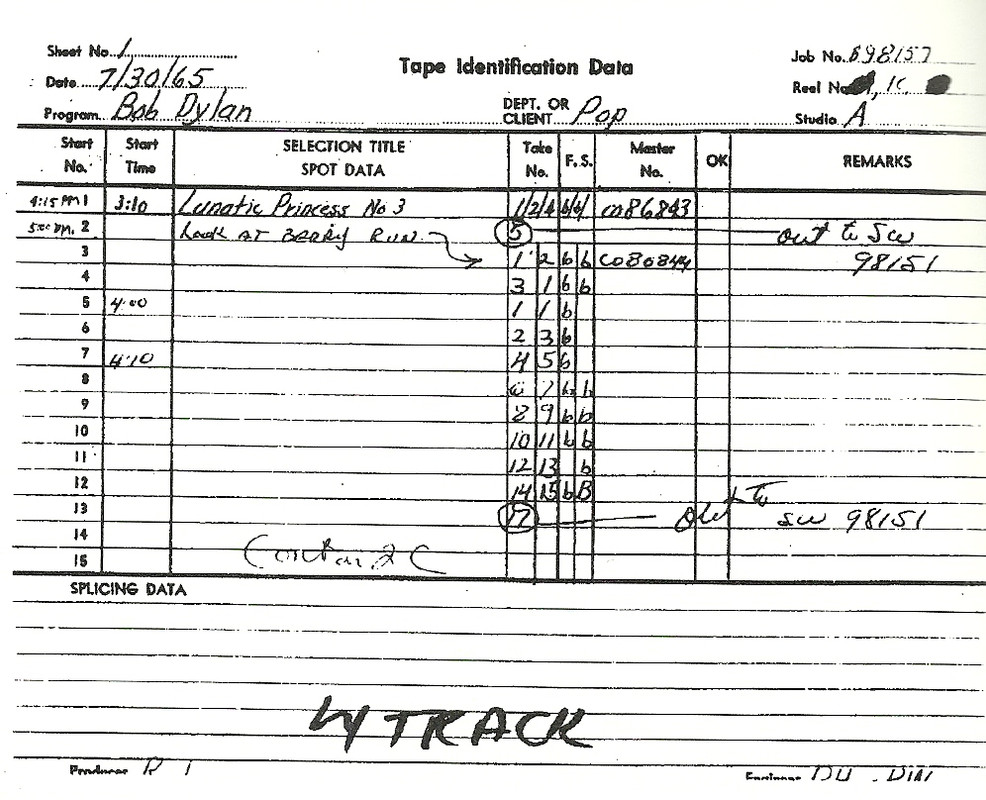 Sheet No. 1
Tape Identification Data
Job No. B98157
Date 7/30/65
Reel No. 1C
Program Bob Dylan
DEPT. OR CLIENT Pop
Studio A
Start No. Start Time SELECTION TITLE SPOT DATA Take No. F.S. Master No. OK REMARKS
4:15 PM 1 3:10 Lunatic Princess No 3 1/2/4 b/b/ co86843
5:00 PM. 2 Look AT BERRY RUN 5 out to SW
3 1 2 b b co86844 98151
4 3 1 b b
5 4:00 1 1 b
6 2 3 b
7 4:10 4 5 b
8 6 7 b b
9 8 9 b b
10 10 11 b b
11 12 13 b
12 14 15 b B
13 17 Out to SW 98151
14
15 Cont on 2C
SPLICING DATA
4 TRACK
Producer
Engineer